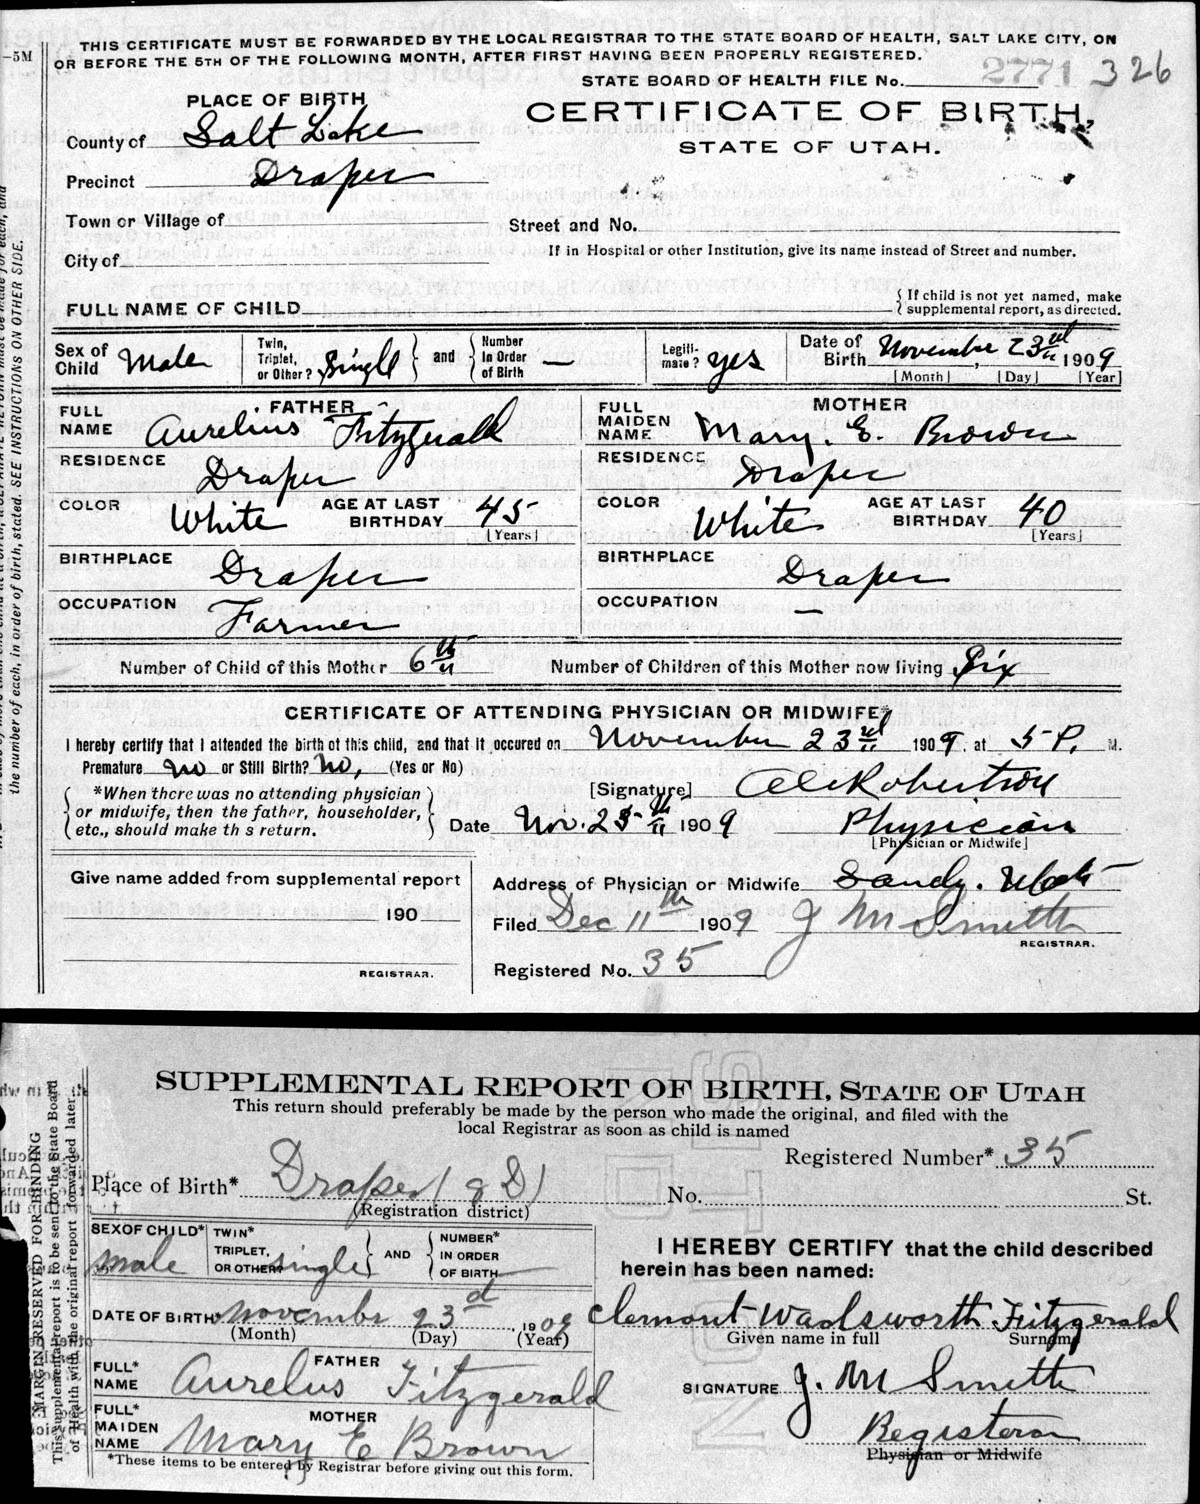 THIS CERTIFICATE MUST BE FORWARDED BY THE LOCAL REGISTRAR TO THE STATE BOARD OF HEALTH, SALT LAKE CITY, ON
OR BEFORE THE 5TH OF THE FOLLOWING MONTH, AFTER FIRST HAVING BEEN PROPERLY REGISTERED.
—5M
STATE BOARD OF HEALTH FILE No. 2771 326
PLACE OF BIRTH
CERTIFICATE OF BIRTH
County of Salt Lake
STATE OF UTAH.
Precinct Draper
Town or Village of
Street and No.
City of
If in Hospital or other Institution, give its name instead of Street and number.
FULL NAME OF CHILD
{ If child is not yet named, make
supplemental report, as directed.
Sex of Child Male
Twin, Triplet, or Other? Single } and { Number in Order of Birth —
Legiti-mate? yes
Date of Birth November 23rd 1909
[Month] [Day] [Year]
FATHER
FULL NAME Aurelius Fitzgerald
RESIDENCE Draper
COLOR White AGE AT LAST BIRTHDAY 45
[Years]
BIRTHPLACE Draper
OCCUPATION Farmer
MOTHER
FULL MAIDEN NAME Mary. E. Brown
RESIDENCE Draper
COLOR White AGE AT LAST BIRTHDAY 40
[Years]
BIRTHPLACE Draper
OCCUPATION —
Number of Child of this Mother 6th Number of Children of this Mother now living Six
CERTIFICATE OF ATTENDING PHYSICIAN OR MIDWIFE*
I hereby certify that I attended the birth of this child, and that it occured on November 23rd 1909, at 5 P. M.
Premature No or Still Birth? No, (Yes or No)
*When there was no attending physician
or midwife, then the father, householder,
etc., should make th s return.
[Signature] Robertson
Date Nov. 25th 1909 Physician
[Physician or Midwife]
Give name added from supplemental report
190
REGISTRAR.
Address of Physician or Midwife Sandy. Utah
Filed Dec 11th 1909 J M Smith
REGISTRAR.
Registered No. 35
the number of each, in order of birth, stated. SEE INSTRUCTIONS ON OTHER SIDE.
SUPPLEMENTAL REPORT OF BIRTH, STATE OF UTAH
This return should preferably be made by the person who made the original, and filed with the
local Registrar as soon as child is named
Registered Number* 35
Place of Birth* Draper No. St.
(Registration district)
SEX OF CHILD* male
TWIN* TRIPLET, OR OTHER* single } AND { NUMBER* IN ORDER OF BIRTH —
DATE OF BIRTH* November 23d 1909
(Month) (Day) (Year)
FATHER
FULL* NAME Aurelius Fitzgerald
MOTHER
FULL* MAIDEN NAME Mary E Brown
*These items to be entered by Registrar before giving out this form.
I HEREBY CERTIFY that the child described
herein has been named:
Clemont Wadsworth Fitzgerald
Given name in full Surname
SIGNATURE J. M Smith
Registerar
Physician or Midwife
MARGIN RESERVED FOR BINDING
This supplemental report is to be sent to the State Board
of Health with the original report forwarded later.